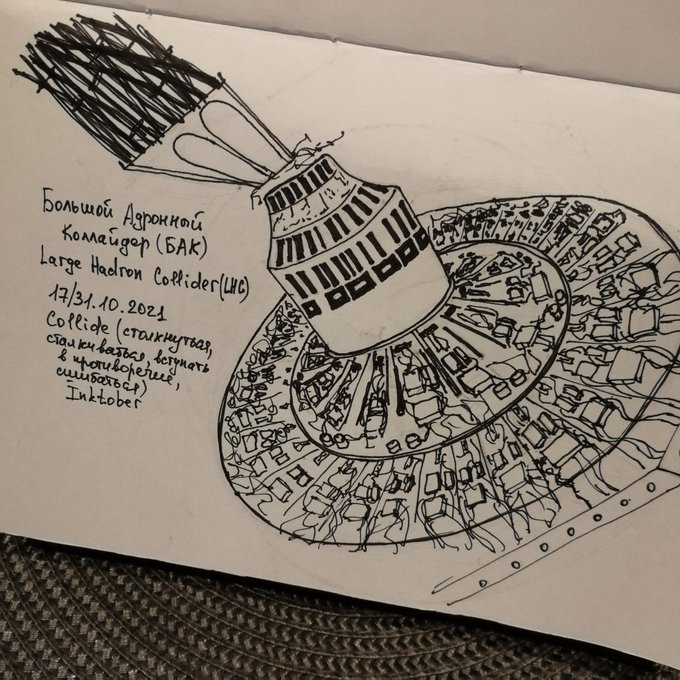 Большой Адронный
Коллайдер (БАК)
Large Hadron Collider (LHC)
17/31.10.2021
Collide (столкнуться,
сталкиваться, вступать
в противоречие,
сшибаться)
Inktober